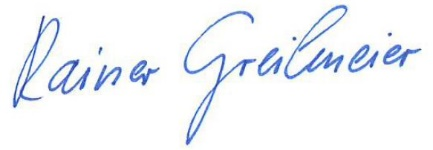 Rainer Greilmeier